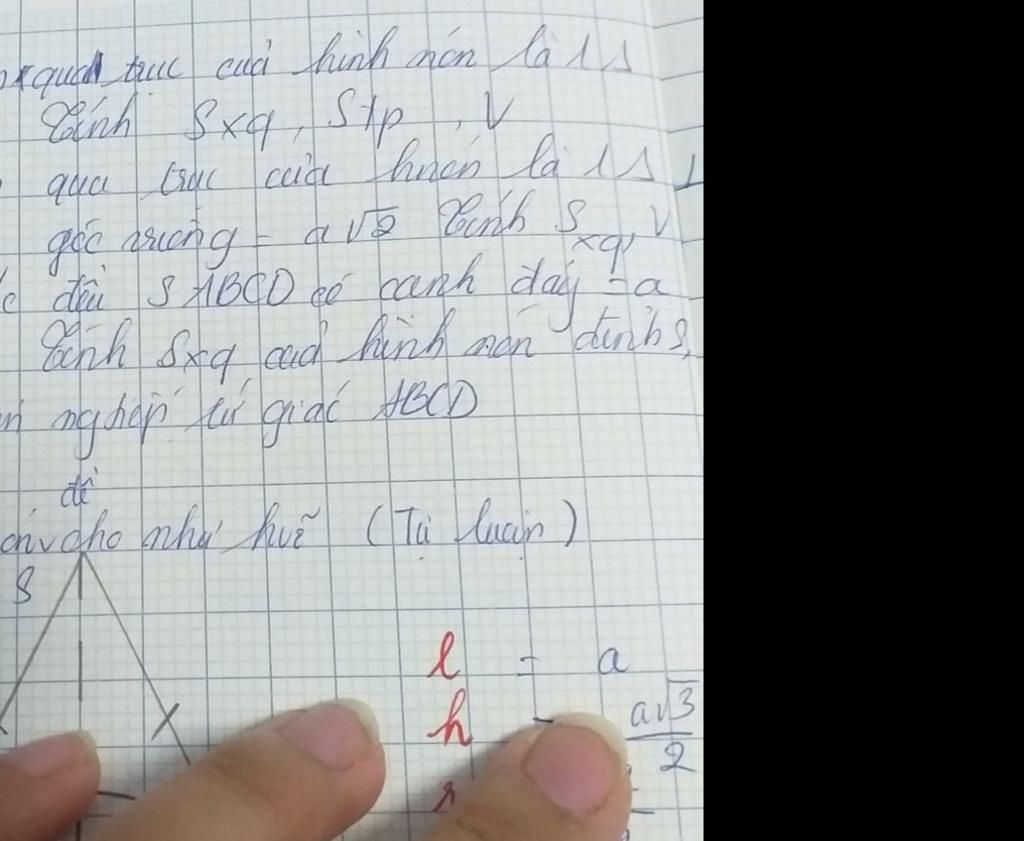 qua trục của hình nón là 1 Δ
Tính Sxq, Stp, V
qua trục của hnón là 1 Δ ⊥
góc vuông = a√2 Tính Sxq, V
đều SABCD có cạnh đáy = a
Tính Sxq của hình nón đỉnh S,
nghiệp tứ giác ABCD
để
cho như hvẽ (Tự luận)
S
l = a
h = a√3/2
r